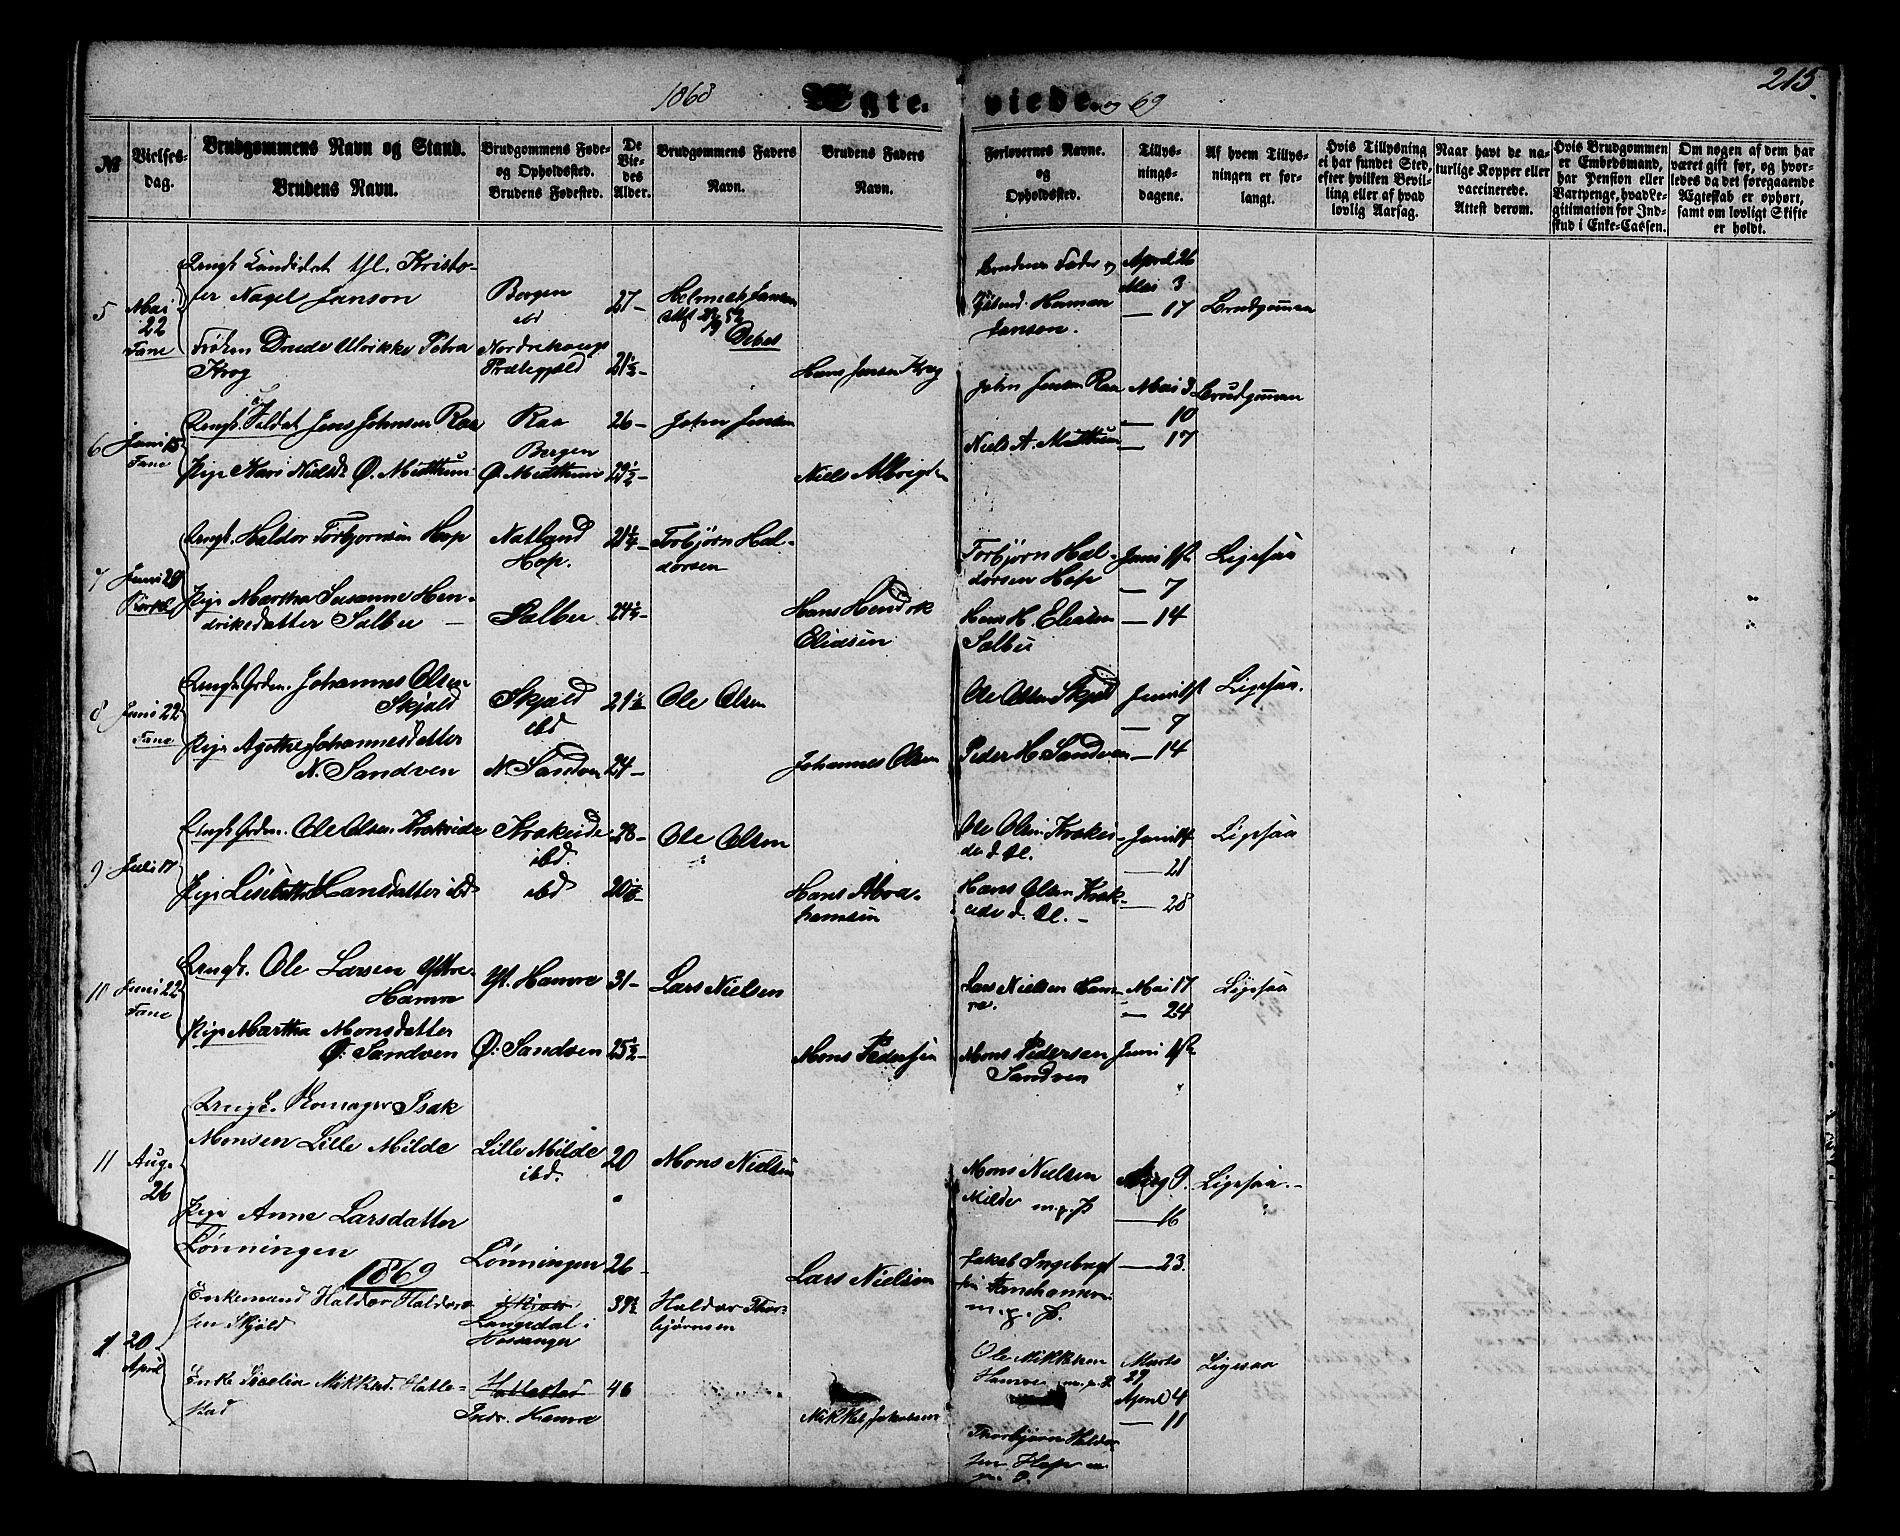 1868 Ægteviede og 69
215.
№
Vielses-
dag.
Brudgommens Navn og Stand.
Brudens Navn.
Brudgommens Føde-
og Opholdssted.
Brudens Fødested.
De
Vie-
des
Alder.
Brudgommens Faders
Navn.
Brudens Faders
Navn.
Forlovernes Navne.
og
Opholdssted.
Tillys-
nings-
dagene.
Af hvem Tillys-
ningen er for-
langt.
Hvis Tillysning
ei har fundet Sted,
efter hvilken Bevil-
ling eller af hvad
lovlig Aarsag.
Naar havt de na-
turlige Kopper eller
vaccinerede.
Attest derom.
Hvis Brudgommen
er Embedsmand,
har Pension eller
Vartpenge, hvad Le-
gitimation for Ind-
skud i Enke-Cassen.
Om nogen af dem har
været gift før, og hvor-
ledes da det foregaaende
Ægteskab er ophørt,
samt om lovligt Skifte
er holdt.
5
Mai
22
Fane
Ungk. Candidat thl. Kristo-
fer Nagel Janson
Frøken Drude Ulrikke Petra
Krog
Bergen
ibd
Nordrehougs
Præstegjæld
27
21½
Helmich Janson
Debes
Hans Jensen Krog
Brudens Fader og
Herman
Janson.
April 26
Mai 3
— 17
Brudgommen
6
Juni 15
Fane
Ungk. Soldat Jens Johnsen Raa
Pige Kari Nielsd. Ø. Midttun
Raa
Bergen
Ø. Midttun
26
29½
John Jensen
Niels Albrigtsen
John Jensen Raa
Niels A. Midttun
Mai 3
— 10
— 17
Brudgommen
7
Juni 29
Ungk. Haldor Torbjørnsen Hop
Pige Martha Susanne Hen-
driksdatter Salbu
Natland
Hop.
Salbu
21¼
24½
Torbjørn Hal-
dorsen
Hans Hendrik
Eliasen
Torbjørn Hal-
dorsen Hop
Hans H. Eliasen
Salbu
Juni 1ste
— 7
— 14
Ligesaa
8
Juni 22
Fane
Ungk. Grdm. Johannes Olsen
Skjold
Pige Agathe Johannesdatter
N. Sandven
Skjold
ibd
N. Sandven
21½
24
Ole Olsen
Johannes Olsen
Ole Olsen Skjold
Peder H. Sandven
Juni 1ste
— 7
— 14
Ligesaa.
9
Juli 17
Ungk. Grdm. Ole Olsen Krokeide
Pige Lisebeth Hansdatter ibd
Krokeide
ibd.
ibd
28
20½
Ole Olsen
Hans Abra-
hamsen
Ole Olsen Krokei-
de
Hans Olsen Krok-
eide
Juni 14
— 21
— 28
Ligesaa
10
Juni 22
Fane
Ungk. Ole Larsen Ystre
Hamre
Pige Martha Monsdatter
Ø. Sandven
Yst. Hamre
Ø. Sandven
31
25½
Lars Nielsen
Mons Pedersen
Lars Nielsen Ham-
re.
Mons Pedersen
Sandven
Mai 17
— 24
Juni 1ste
Ligesaa
11
Aug.
26
Ungk. Isak
Monsen Lille Milde
Pige Anne Larsdatter
Lønningen
Lille Milde
ibd.
Lønningen
20
26
Mons Nielsen
Lars Nielsen
Mons Nielsen
Milde m.p.P
Jakob Ingebrigt-
sen
m.p.P.
Aug 9.
— 16
— 23.
Ligesaa.
1869
1
20
April
Enkemand Haldor Haldor-
sen Skjold
Enke Siselia Mikkelsd. Hatle-
stad
Langedal i
Hosanger
Hatlestad
Indr. Hamre
39½
46
Haldor Thor-
bjørnsen
Mikkel Jakobsen
Ole Mikkelsen
Hamre m.p.P
Thorbjørn Haldor-
sen Hop m.
p. P.
Marts
29
April 4
— 11
Ligesaa